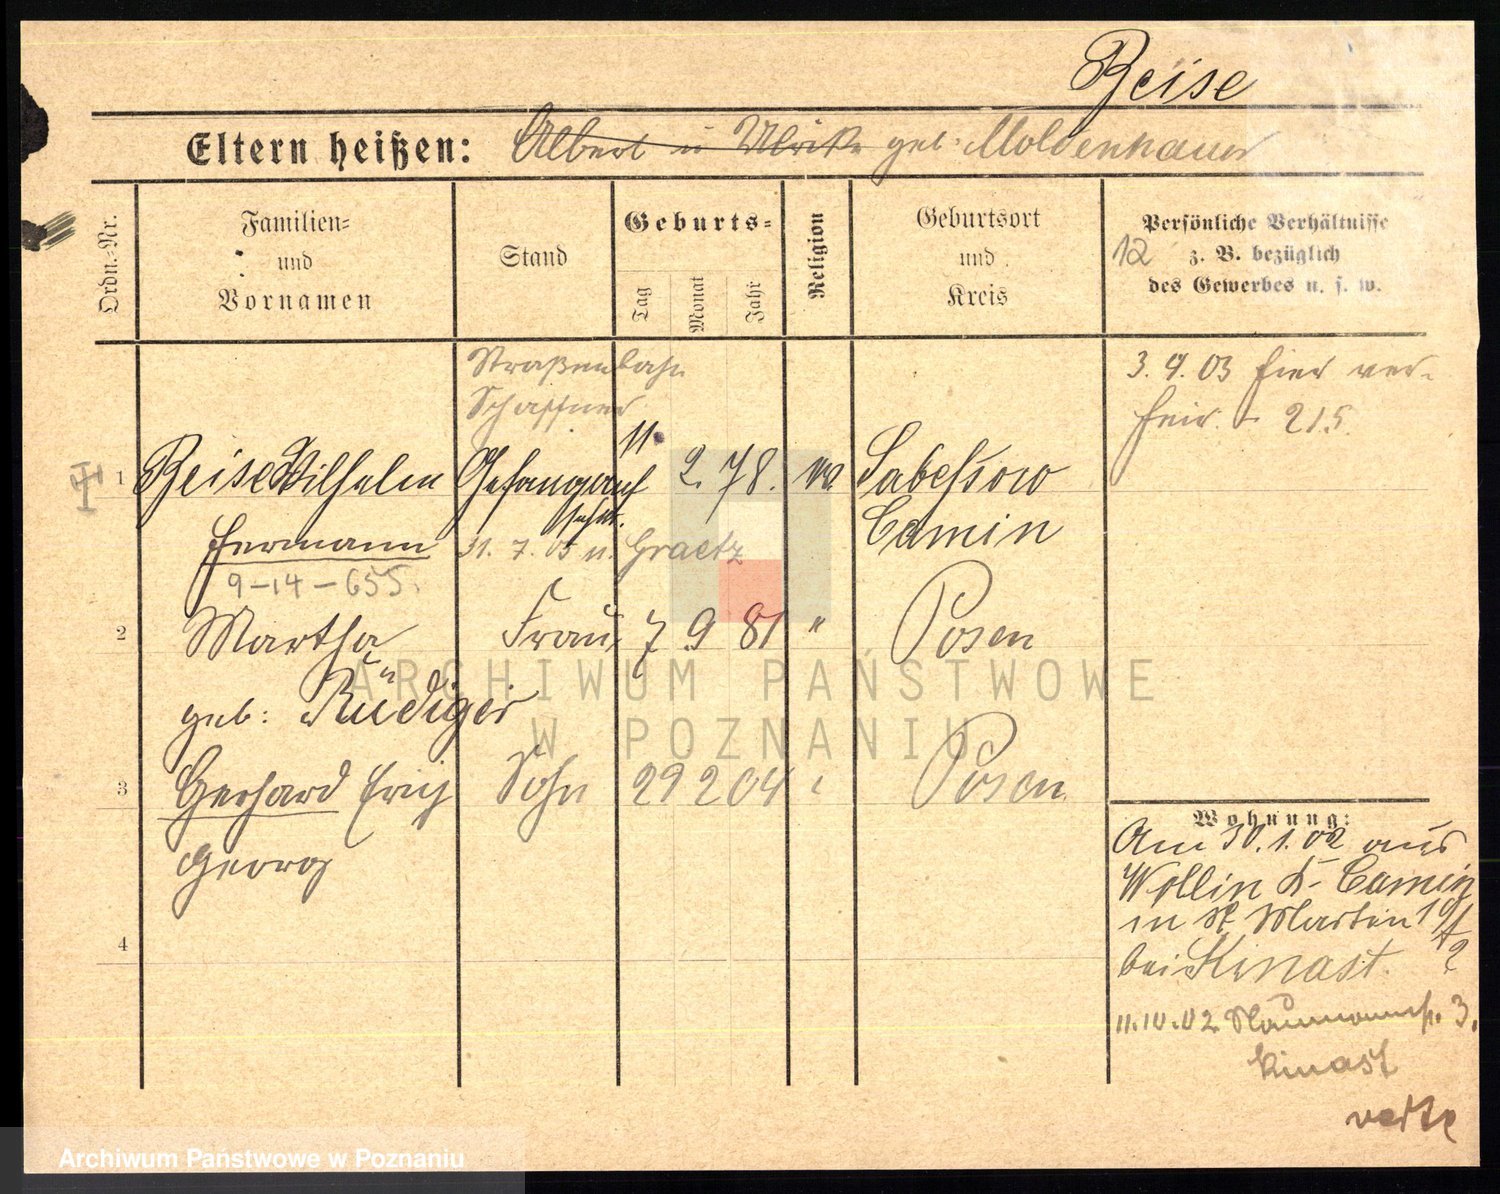 Beise
Eltern heißen: Albert u Ulrike geb: Moldenhauer
Ordn.-Nr.
Familien-
und
Vornamen
Stand
Geburts-
Tag
Monat
Jahr
Religion
Geburtsort
und
Kreis
Persönliche Verhältnisse
12 z. B. bezüglich
des Gewerbes u. s. w.
Straßenbahn
Schaffner
3. 9. 03 hier ver-
heir. - 215.
1 Beise Wilhelm Gefangenauf 11. 2. 78. Sabessow
sehr. Camin
Hermann 31. 7. 05 n. Graetz
9-14-655.
2 Martha Frau 7 9 81 " Posen
geb: Rüdiger
3 Gerhard Erich Sohn 29 2 04 " Posen
Georg
4
Wohnung:
Am 30.1.02 aus
Wollin Kr. Camin
in St Martin
bei Kinast.
11.10.02 Naumannstr. 3.
Kinast
verte
ARCHIWUM PAŃSTWOWE
W POZNANIU
Archiwum Państwowe w Poznaniu